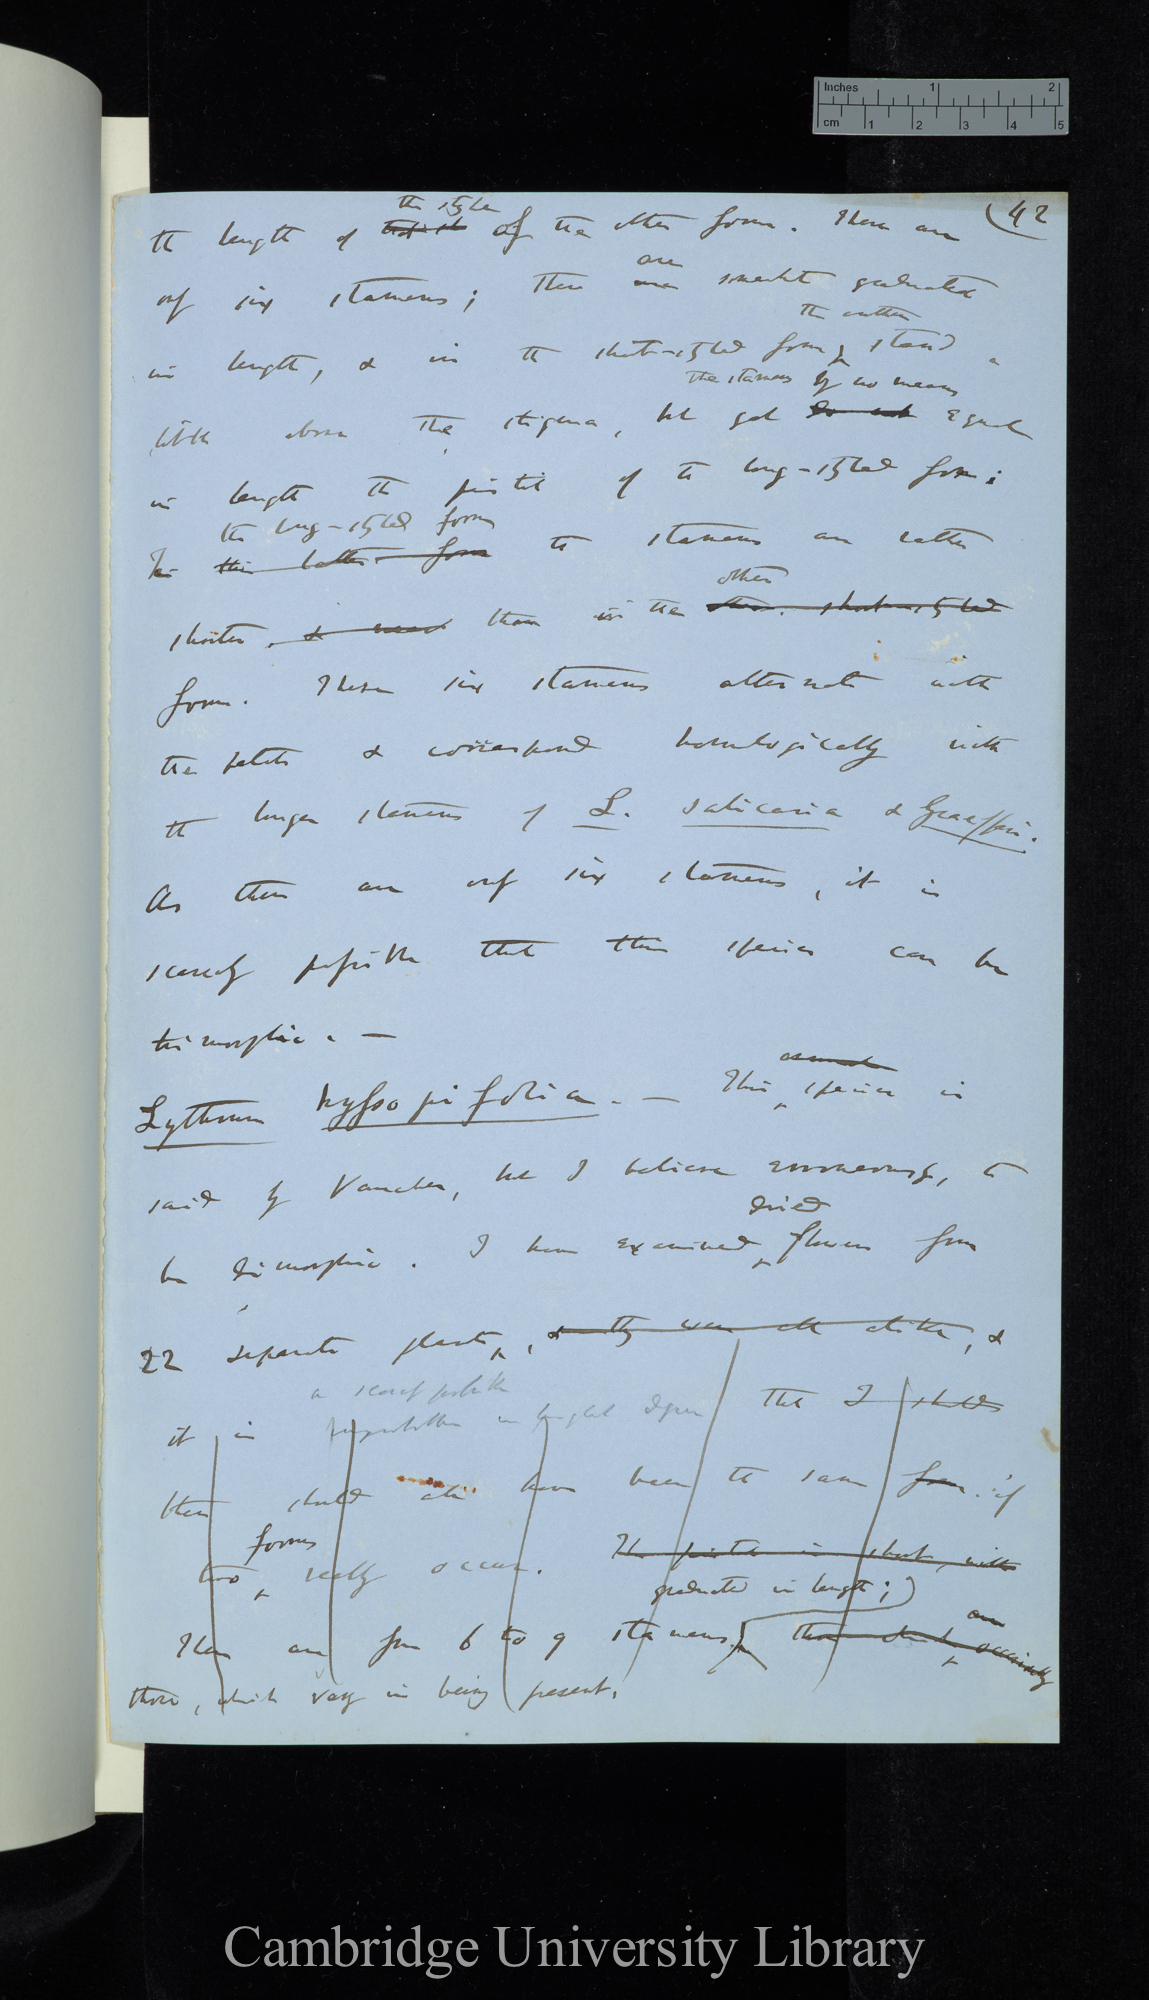 Inches 1 2
cm 1 2 3 4 5
(42
the style
the length of of the other form. There are
only six stamens; there are somewhat graduated
the anthers
in length, & in the short-styled form, stand a
the stamens by no means
little above the stigma, but yet do not equal
in length the pistil of the long-styled form;
the long-styled form
In this latter form the stamens are rather
other
shorter, than in the short-styled
form. These six stamens alternate with
the petals & correspond homologically with
the longer stamens of L. salicaria & Graefferi.
As there are only six stamens, it is
scarcely possible that this species can be
trimorphic. —
Lythrum hyssopifolia. — This species is
said by Vaucher, but I believe erroneously, to
dried
be dimorphic. I have examined flowers from
22 separate plants, & they were all alike, &
scarcely possible
it is in highest degree that I should
these should all have been the same form if
forms
two really occur. The pistil is short, with
graduated in length;
There are from 6 to 9 stamens, three are occasionally
three, which vary in being present.
Cambridge University Library